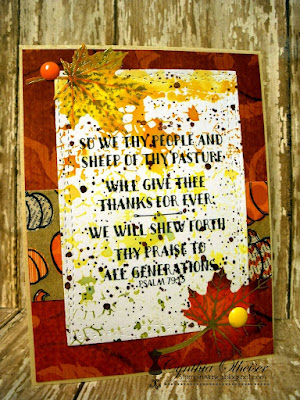 SO WE THY PEOPLE AND
SHEEP OF THY PASTURE
WILL GIVE THEE
THANKS FOR EVER:
WE WILL SHEW FORTH
THY PRAISE TO
ALL GENERATIONS.
PSALM 79:13